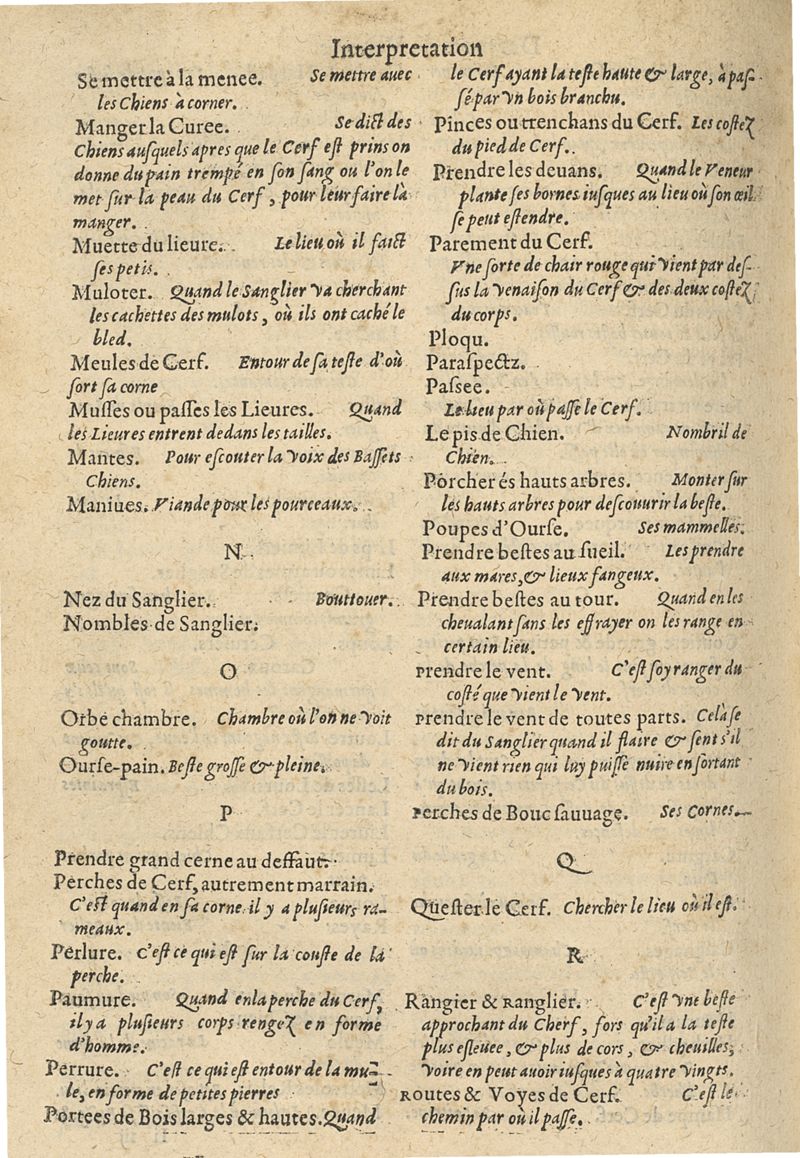 Interpretation
Se mettre à la menee. Se mettre auec
les Chiens à corner.
Manger la Curee. Se dict des
Chiens ausquels apres que le Cerf est prins on
donne du pain trempé en son sang ou l'on le
met sur la peau du Cerf, pour leur faire là
manger.
Muette du lieure. Le lieu où il faict
ses petis.
Muloter. Quand le Sanglier va cherchant
les cachettes des mulots, où ils ont caché le
bled.
Meules de Cerf. Entour de sa teste d'où
sort sa corne
Musses ou passes les Lieures. Quand
les Lieures entrent dedans les tailles.
Mantes. Pour escouter la voix des Bassets
Chiens.
Maniues. Viande pour les pourceaux.
N
Nez du Sanglier. Bouttouer.
Nombles de Sanglier.
O
Orbé chambre. Chambre où l'on ne voit
goutte.
Ourse-pain. Beste grosse & pleine.
P
Prendre grand cerne au deffaut.
Perches de Cerf, autrement marrain.
C'est quand en sa corne il y a plusieurs ra-
meaux.
Perlure. c'est ce qui est sur la couste de la
perche.
Paumure. Quand en la perche du Cerf,
il y a plusieurs corps rengez en forme
d'homme.
Perrure. C'est ce qui est entour de la mu-
le, en forme de petites pierres
Portees de Bois larges & hautes. Quand
le Cerf ayant la teste haute & large, à pas-
sé par vn bois branchu.
Pinces ou trenchans du Cerf. Les costez
du pied de Cerf.
Prendre les deuans. Quand le Veneur
plante ses bornes iusques au lieu où son œil
se peut estendre.
Parement du Cerf.
Vne sorte de chair rouge qui vient par des-
sus la venaison du Cerf & des deux costez
du corps.
Ploqu.
Paraspectz.
Passee.
Le lieu par où passe le Cerf.
Le pis de Chien. Nombril de
Chien.
Porcher és hauts arbres. Monter sur
les hauts arbres pour descouurir la beste.
Poupes d'Ourse. Ses mammelles.
Prendre bestes au sueil. Les prendre
aux mares, & lieux fangeux.
Prendre bestes au tour. Quand en les
cheualant sans les effrayer on les range en
certain lieu.
Prendre le vent. C'est soy ranger du
costé que vient le vent.
Prendre le vent de toutes parts. Celà se
dit du Sanglier quand il flaire & sent s'il
ne vient rien qui luy puisse nuire en sortant
du bois.
Perches de Bouc sauuage. Ses Cornes.
Q
Quester le Cerf. Chercher le lieu où il est.
R
Rangier & Ranglier. C'est vne beste
approchant du Cherf, fors qu'il a la teste
plus esleuee, & plus de cors, & cheuilles,
voire en peut auoir iusques à quatre vingts.
Routes & Voyes de Cerf. C'est le
chemin par où il passe.